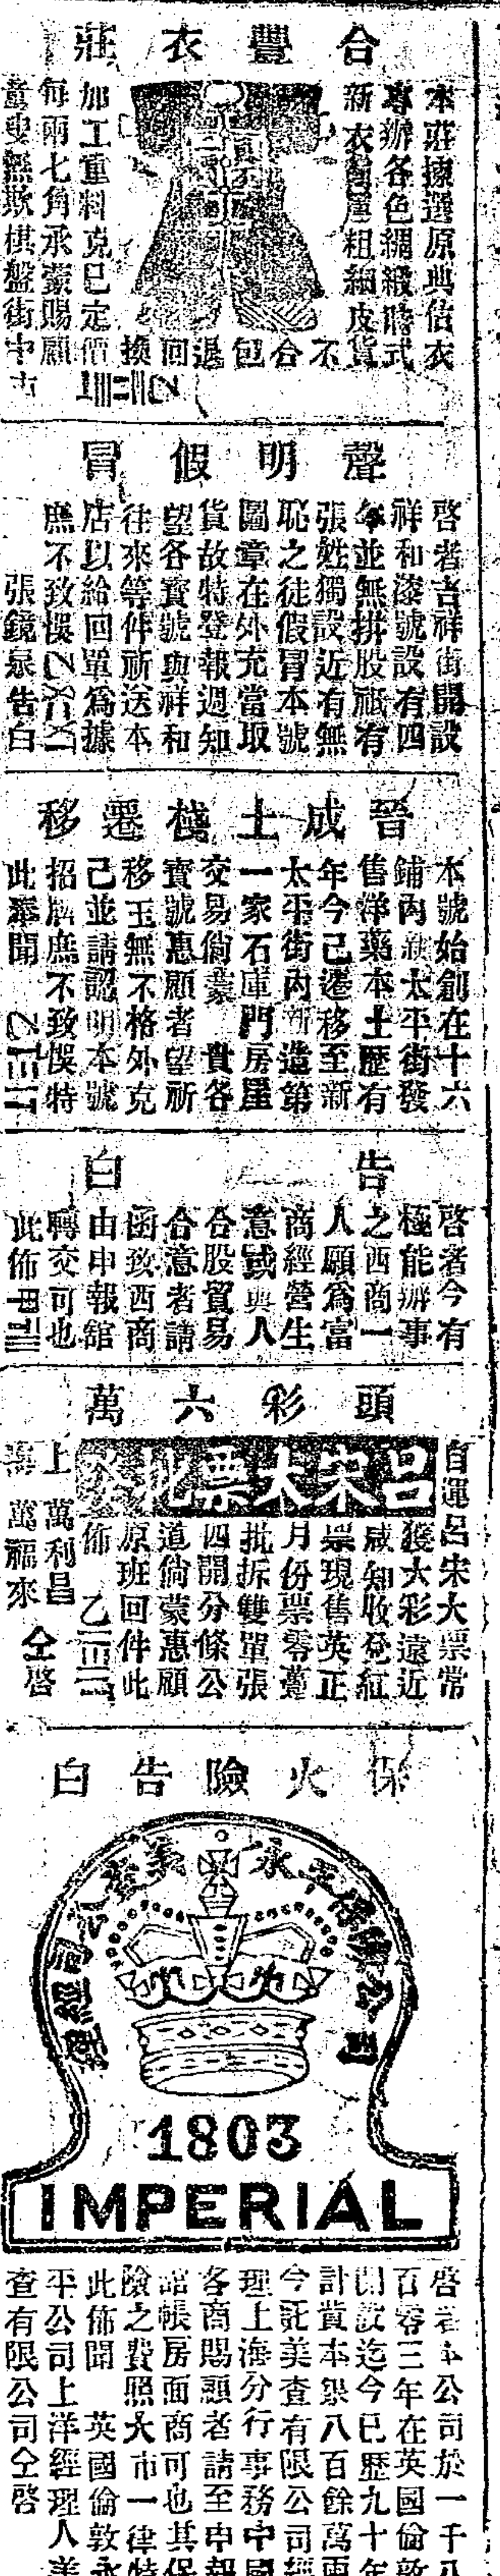 合豐衣莊
本莊揀選原典估衣
專辦各色綢緞時式
新衣粗細皮貨
不合包退回換
加工重料克己定價
每兩七角承蒙賜顧
童叟無欺棋盤街中市
聲明假冒
啓者吉祥街開設
祥和漆號設有四
年並無拼股祗有
張姓獨設近有無
恥之徒假冒本號
圖章在外充當取
貨故特登報週知
望各寶號與祥和
往來等件祈送本
店以給回單爲據
庶不致悞
張鏡泉告白
晉成土棧遷移
本號始創在十六
鋪內太平街發
售洋藥本土歷有
年今已遷移至新
太平街內新造第
一家石庫門房屋
交易倘蒙 貴各
寶號惠顧者望祈
移玉無不格外克
己並請認明本號
招牌庶不致悞特
此奉聞
告白
啓者今有
極能辦事
之西商一
人願爲富
商經營生
意或與人
合股貿易
合意者請
函致西商
由申報館
轉交可也
此佈
頭彩六萬
呂宋大票
自運呂宋大票常
獲大彩遠近
咸知收兌紅
票現售英正
月份票零躉
批拆雙單張
四開分條公
道倘蒙惠顧
原班回件此
佈
上 萬利昌
萬福來 仝啓
保火險告白
永平保險公司
美查公司經理
1803
IMPERIAL
啓者本公司於一千八
百零三年在英國倫敦
開設迄今已歷九十年
計資本銀八百餘萬兩
今託美查有限公司經
理上海分行事務中國
各商賜顧者請至申報
館帳房面商可也其保
險之費照大市一律特
此佈聞 英國倫敦永
平公司上洋經理人美
查有限公司仝啓